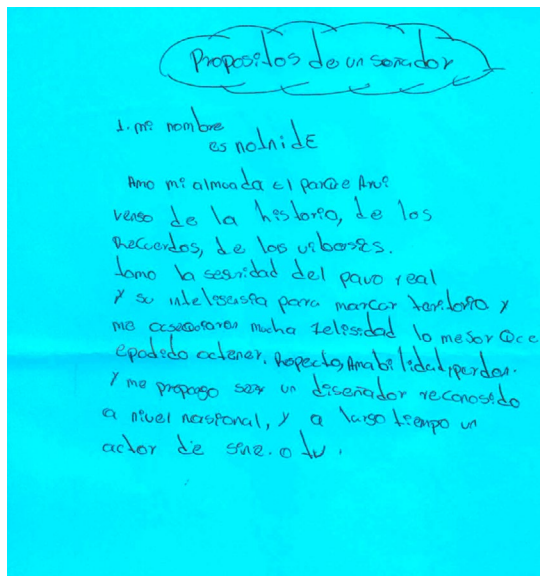 Propositos de un soñador
1. mi nombre
es notnidE
Amo mi almoada El parQe Arvi
verso de la historia, de los
Recuerdos, de los
tomo la seguridad del pavo real
y su para marcar territorio y
me mucha felisidad lo mejor Qce
epodido octener. Respecto, Amabilidad, perdon.
y me propongo ser un diseñador reconosido
a nivel nasional, y a largo tiempo un
actor de sine. o tv.